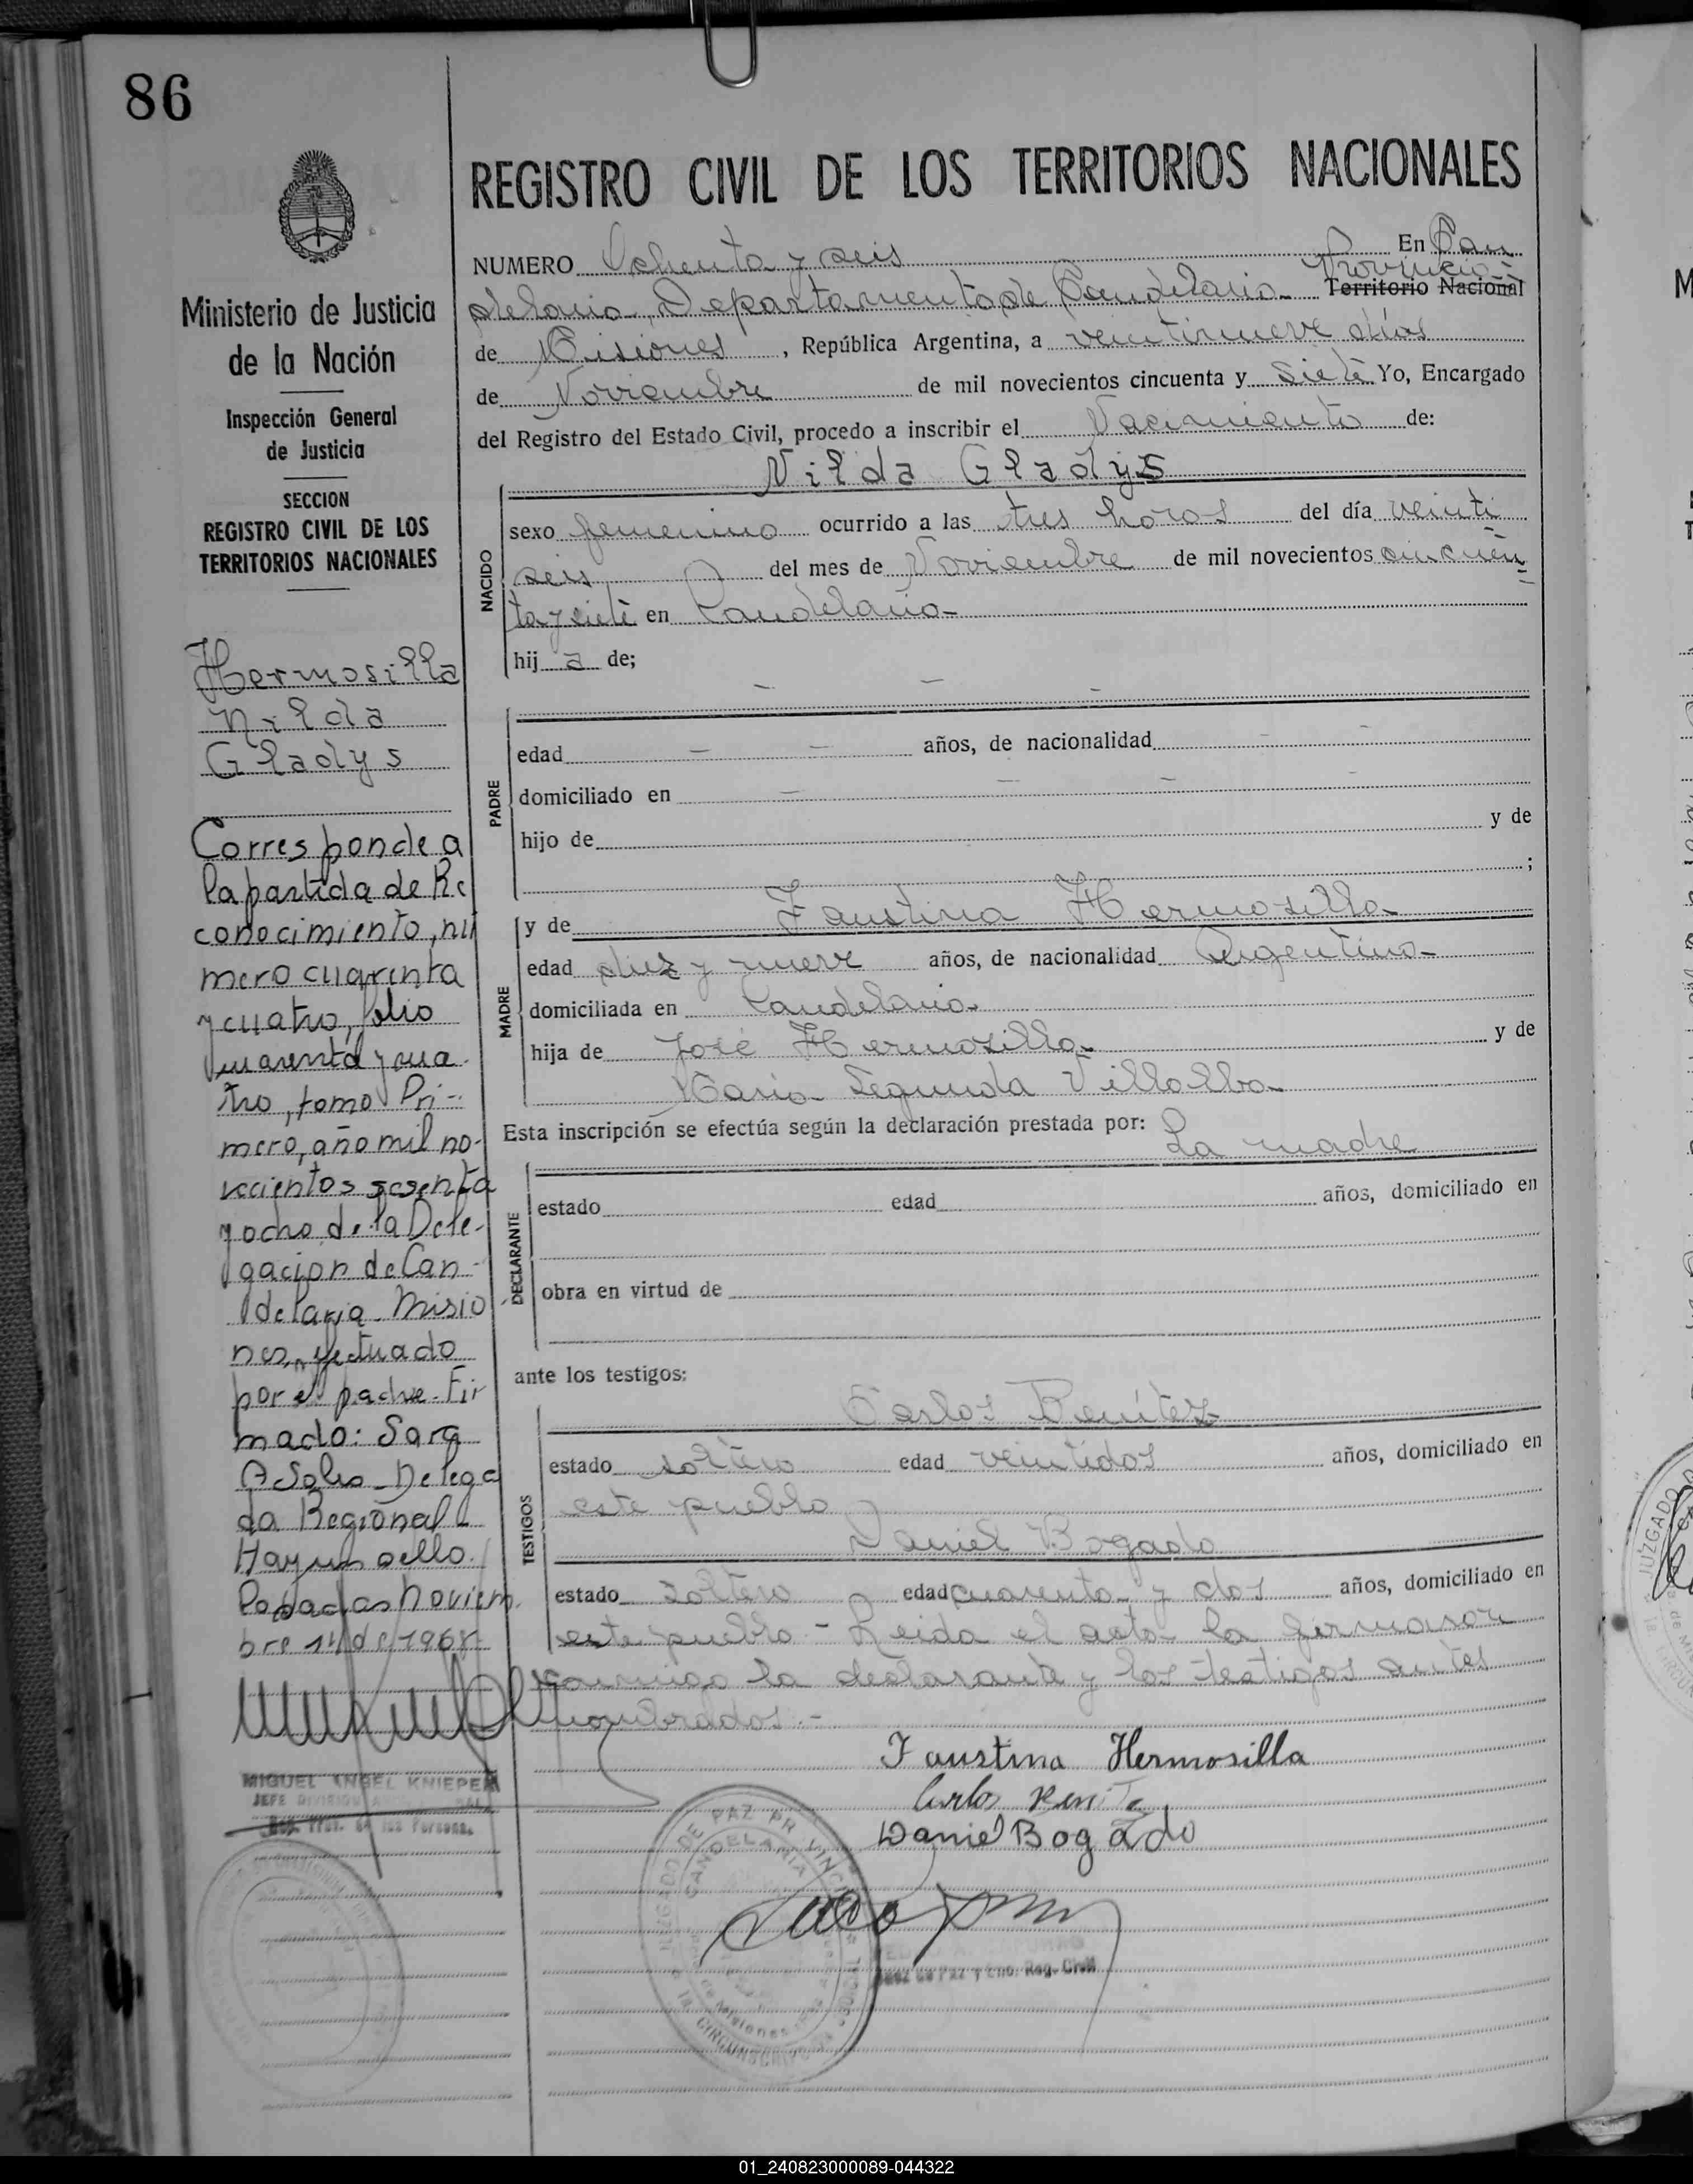 86
REGISTRO CIVIL DE LOS TERRITORIOS NACIONALES
NUMERO Ochenta y seis En Can
Provincia
delaria, Departamento de Candelaria Territorio Nacional
de Misiones, República Argentina, a veintinueve días
de Noviembre de mil novecientos cincuenta y siete Yo, Encargado
del Registro del Estado Civil, procedo a inscribir el Nacimiento de:
Nilda Gladys
NACIDO
sexo femenino ocurrido a las tres horas del día veinti
seis del mes de Noviembre de mil novecientos cincuen
ta y siete en Candelaria-
hij a de;
PADRE
edad años, de nacionalidad
domiciliado en
hijo de y de
;
MADRE
y de Faustina Hermosilla
edad diez y nueve años, de nacionalidad Argentina-
domiciliada en Candelaria
hija de José Hermosilla- y de
Maria Segunda Villalba-
Esta inscripción se efectúa según la declaración prestada por: La madre
DECLARANTE
estado edad años, domiciliado en
obra en virtud de
ante los testigos:
TESTIGOS
Carlos Benítez
estado soltero edad veintidos años, domiciliado en
este pueblo
Daniel Bogado
estado soltero edad cuarenta y dos años, domiciliado en
este pueblo - Leida el acta la firmaron
conmigo la declarante y los testigos antes
nombrados.-
Faustina Hermosilla
Carlos Benitez
Daniel Bogado
JUZGADO DE PAZ
CANDELARIA
de Misiones
CIRCUNSCRIPCION
Juez de Paz y Enc. Reg. Civil
Ministerio de Justicia
de la Nación
Inspección General
de Justicia
SECCION
REGISTRO CIVIL DE LOS
TERRITORIOS NACIONALES
Hermosilla
Nilda
Gladys
Corresponde a
la partida de Re
conocimiento, nú
mero cuarenta
y cuatro, folio
cuarenta y cua
tro, tomo Pri-
mero, año mil no-
vecientos sesenta
y ocho de la Dele-
gacion de Can-
delaria - Misio
nes, efectuado
por el padre. Fir
mado: Sara
A Solis - Delega
da Regional
Hay un sello.
Posadas Noviem
bre 14 de 1968
MIGUEL ANGEL KNIEPER
JEFE DIVISION
01_240823000089-044322